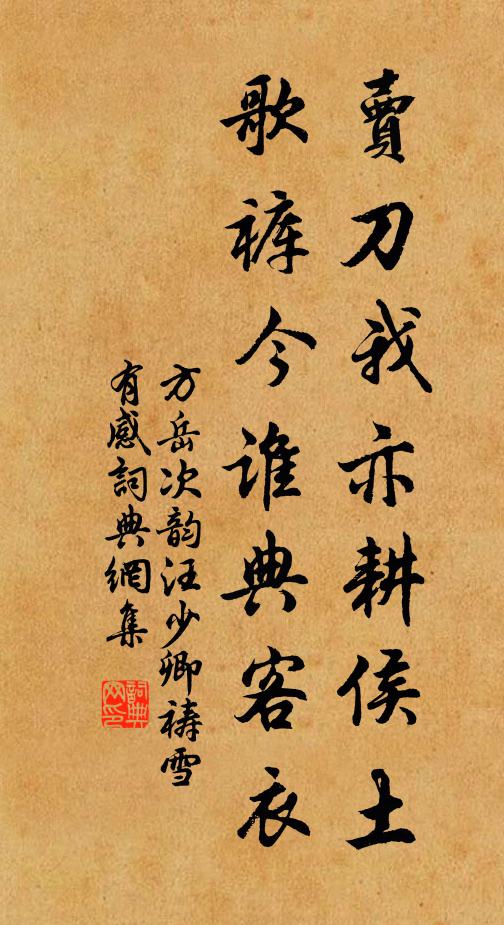 賣刀我亦耕侯土
歌褲今誰典客衣
方岳次韵汪少卿禱雪
有感詞典網集
詞典网印